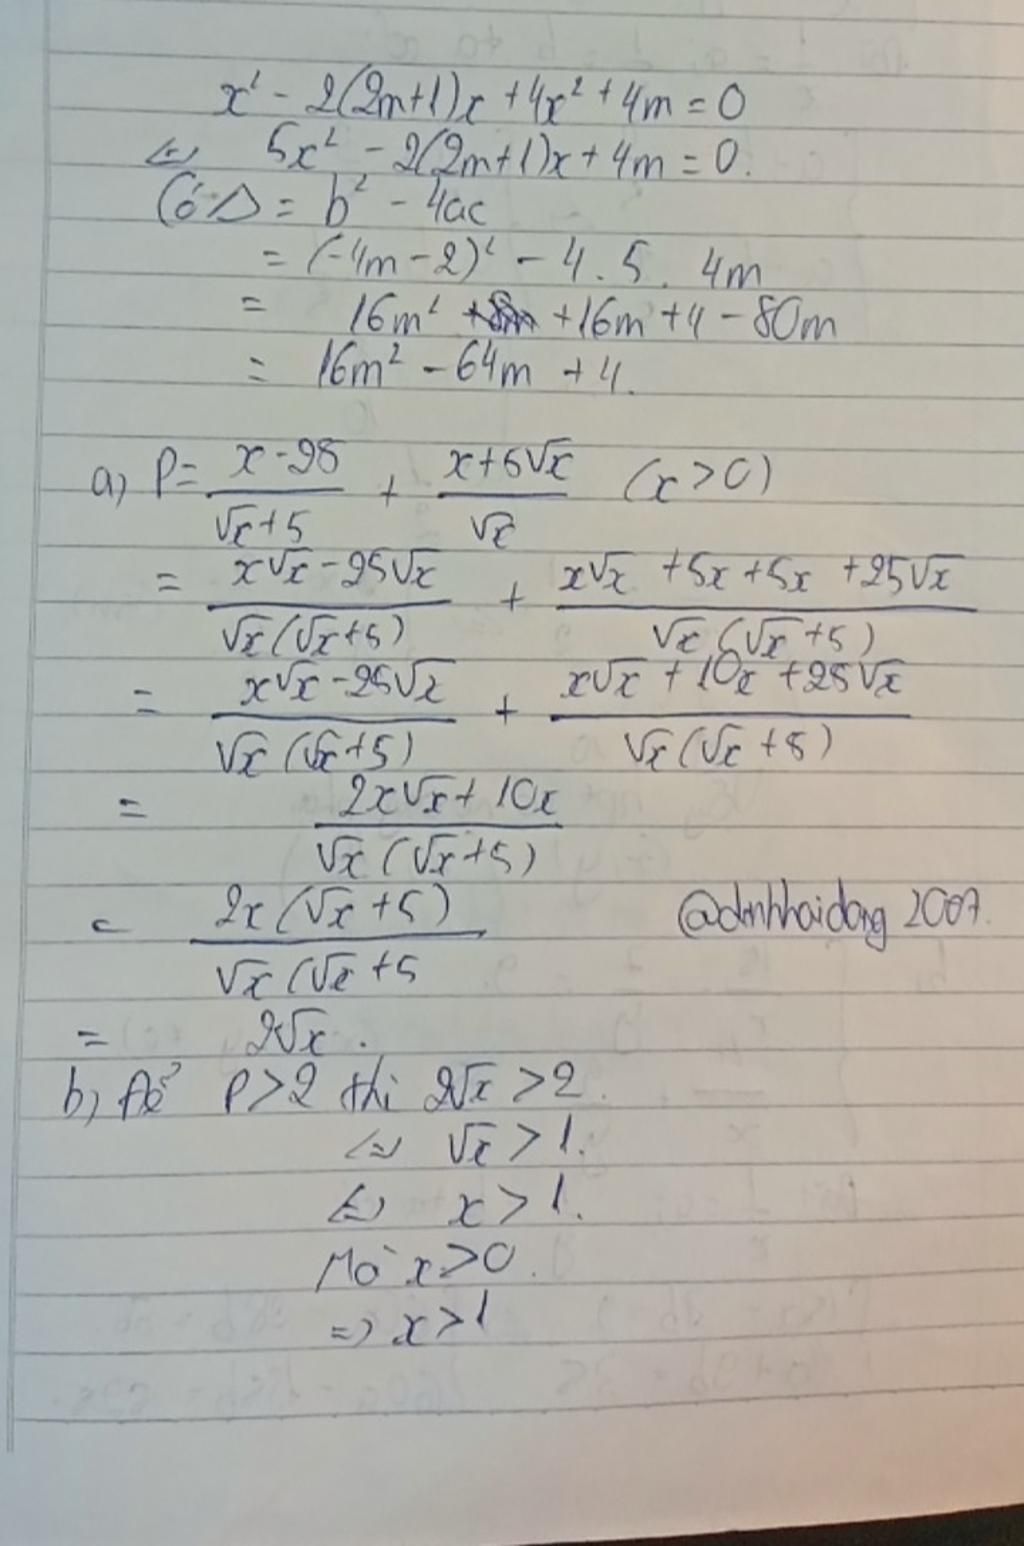 x² - 2(2m+1)x + 4x² + 4m = 0
⇔ 5x² - 2(2m+1)x + 4m = 0.
Có Δ = b² - 4ac
= (-4m - 2)² - 4 . 5 . 4m
= 16m² + 16m + 4 - 80m
= 16m² - 64m + 4.
a) P = (x - 25)/(√x + 5) + (x + 5√x)/√x (x > 0)
= (x√x - 25√x)/(√x(√x + 5)) + (x√x + 5x + 5x + 25√x)/(√x(√x + 5))
= (x√x - 25√x)/(√x(√x + 5)) + (x√x + 10x + 25√x)/(√x(√x + 5))
= (2x√x + 10x)/(√x(√x + 5))
= 2x(√x + 5)/(√x(√x + 5 @dinhhaidang2007.
= 2√x.
b) Để P > 2 thì 2√x > 2.
⇔ √x > 1.
⇔ x > 1.
Mà x > 0.
=> x > 1